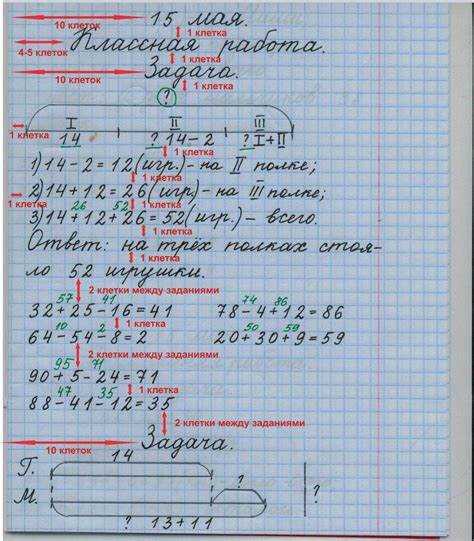 10 клеток 15 мая.
1 клетка
4-5 клеток Классная работа.
1 клетка
10 клеток Задача.
1 клетка
?
1 клетка
I II III
14 ? 14-2 ? I+II
1 клетка
1) 14-2=12 (игр.)- на II полке;
1 клетка
2) 14+12=26 (игр.)- на III полке;
1 клетка 1 клетка
26 52
3) 14+12+26=52 (игр.)- всего.
1 клетка
Ответ: на трёх полках стоя-
1 клетка
ло 52 игрушки.
2 клетки между заданиями
57 41 74 86
32+25-16=41 78-4+12=86
1 клетка
10 2 50 59
64-54-8=2 20+30+9=59
2 клетки между заданиями
95 71
90+5-24=71
1 клетка
47 35
88-41-12=35
2 клетки между заданиями
10 клеток Задача.
14
Г.
М. ?
? 13+11